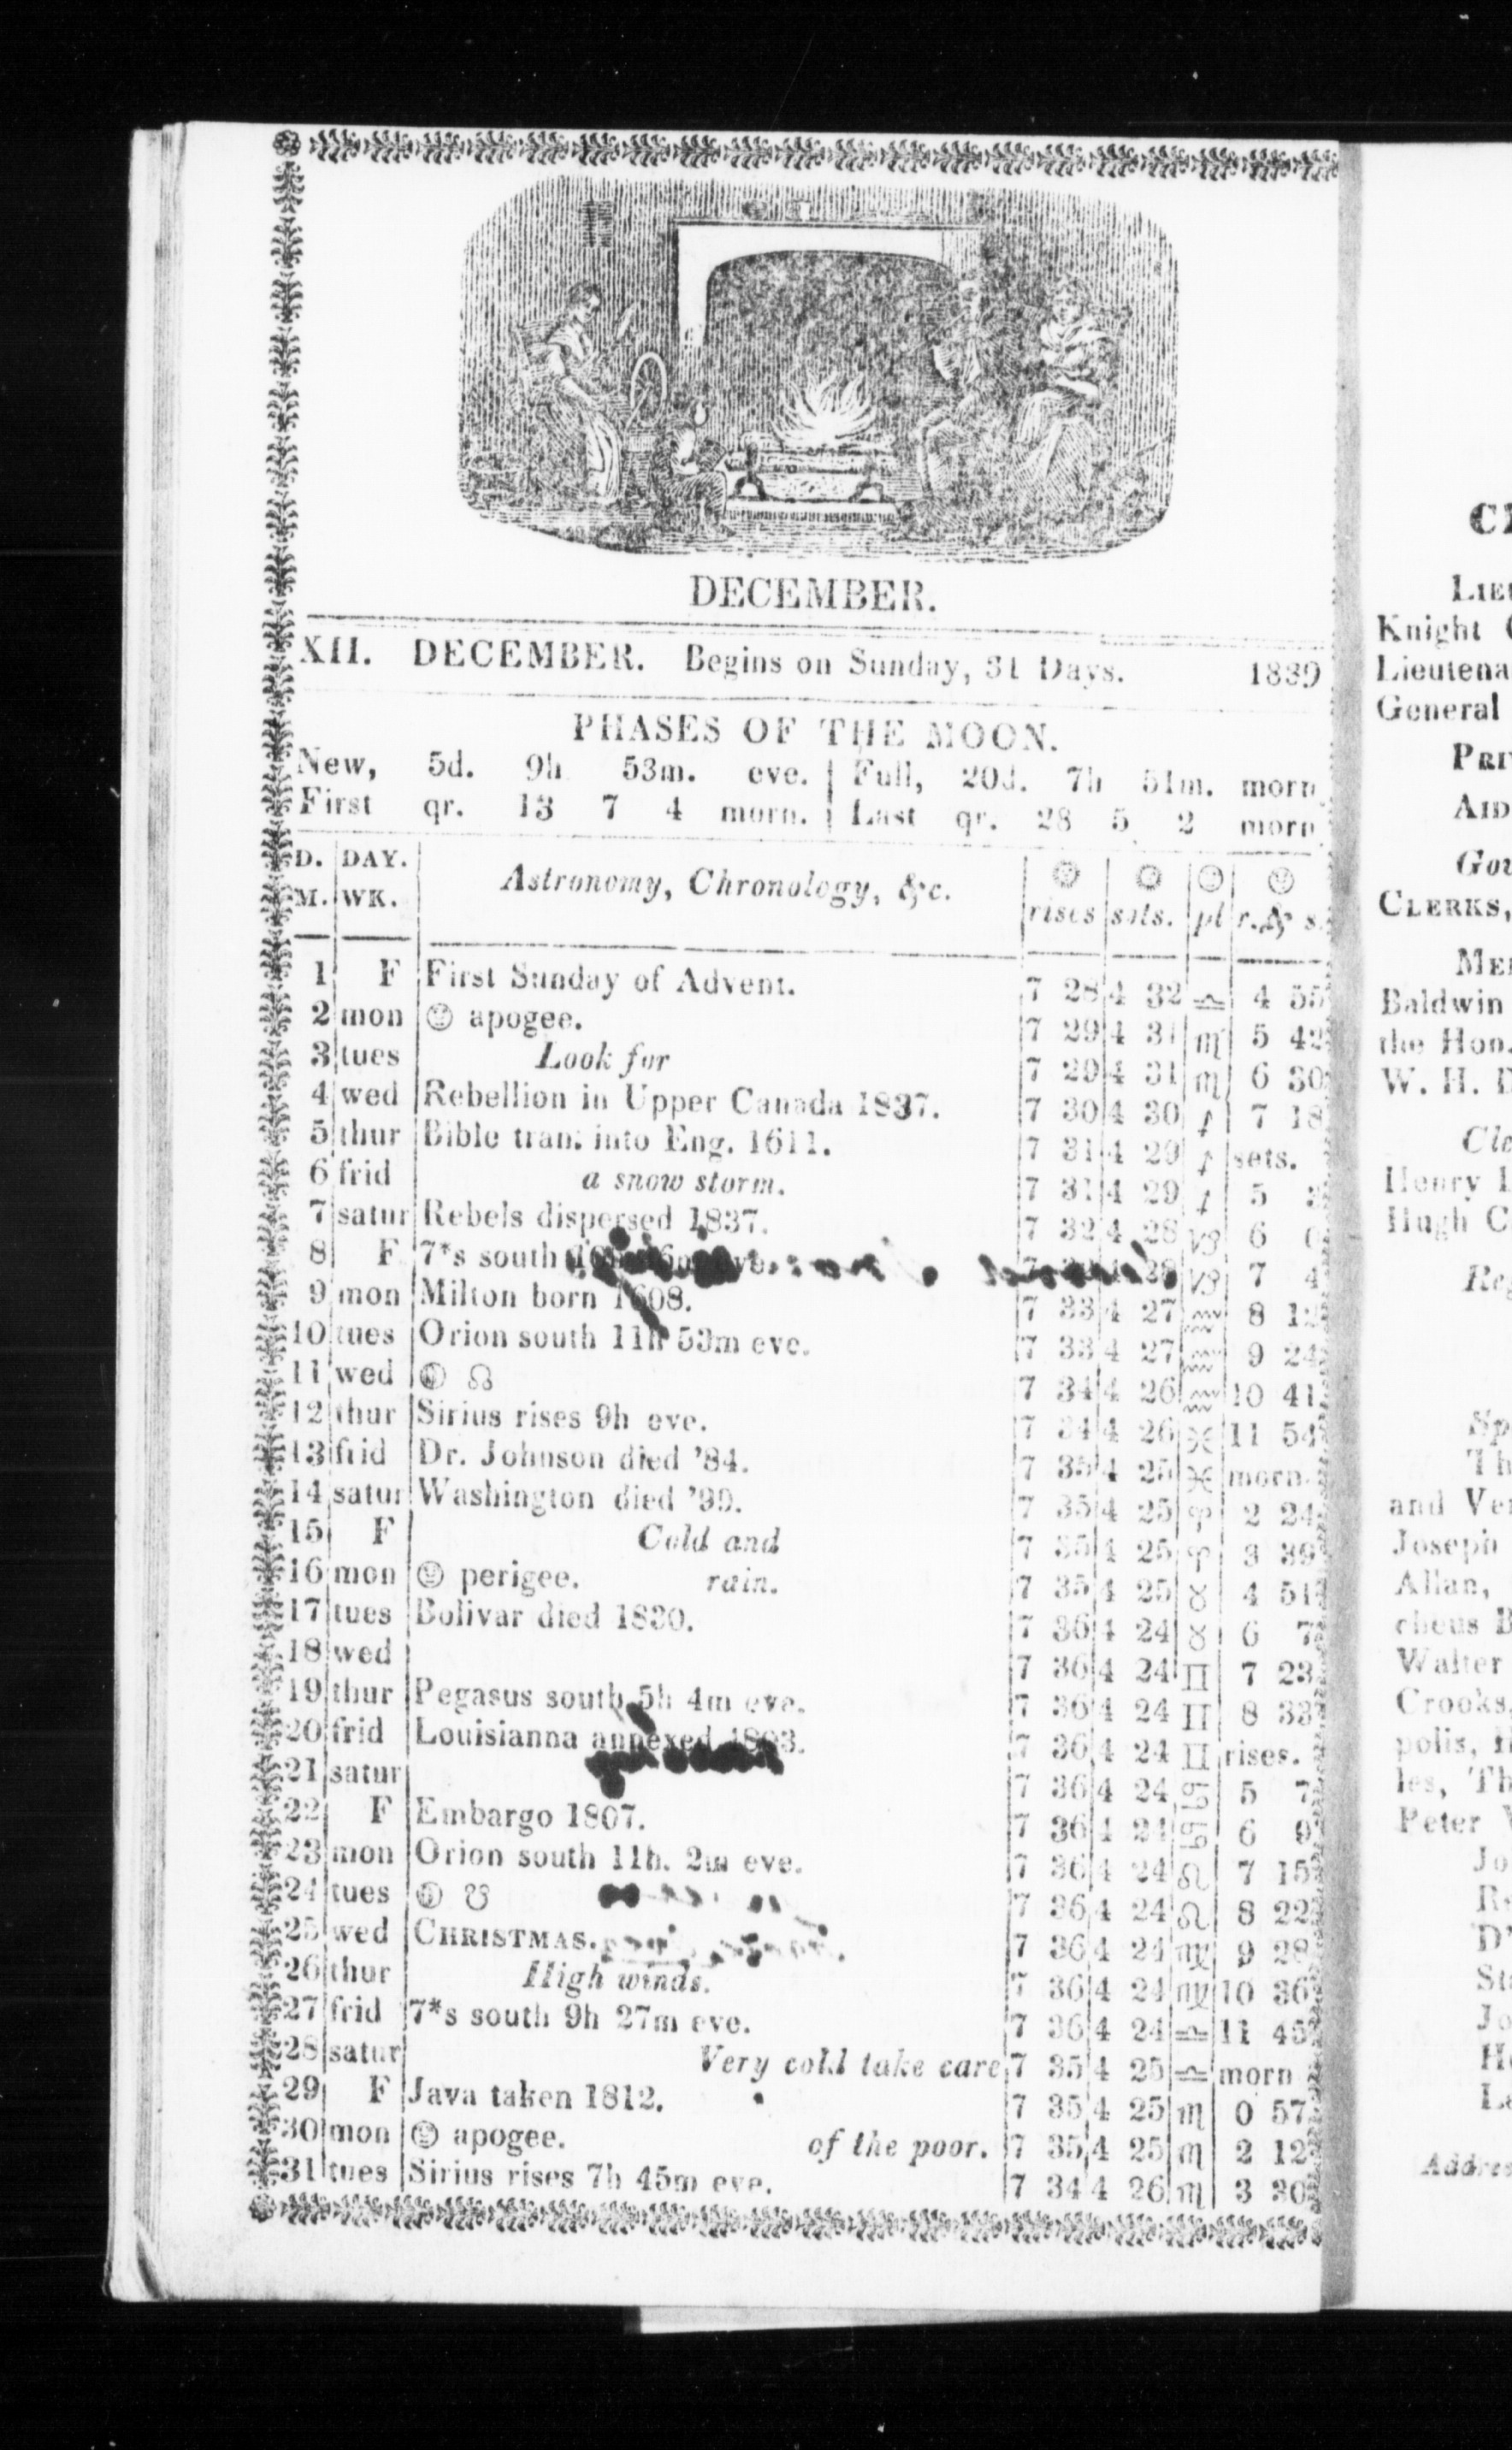 DECEMBER.
XII. DECEMBER. Begins on Sunday, 31 Days. 1839
PHASES OF THE MOON.
New, 5d. 9h 53m. eve. | Full, 20d. 7h 51m. morn
First qr. 13 7 4 morn. | Last qr. 28 5 2 morn
D. M. | DAY. WK. | Astronomy, Chronology, &c. | ☉ rises | ☉ sets. | ☽ pl | ☽ r. & s.
1 F First Sunday of Advent. 7 28 4 32 ♎ 4 55
2 mon ☽ apogee. 7 29 4 31 ♏ 5 42
3 tues Look for 7 29 4 31 ♏ 6 30
4 wed Rebellion in Upper Canada 1837. 7 30 4 30 ♐ 7 18
5 thur Bible tran. into Eng. 1611. 7 31 4 29 ♐ sets.
6 frid a snow storm. 7 31 4 29 ♐ 5
7 satur Rebels dispersed 1837. 7 32 4 28 ♑ 6
8 F 7*s south eve. 28 ♑ 7 4
9 mon Milton born 1608. 7 33 4 27 ♒ 8 12
10 tues Orion south 11h 53m eve. 7 33 4 27 ♒ 9 24
11 wed ☽ ☊ 7 34 4 26 ♒ 10 41
12 thur Sirius rises 9h eve. 7 34 4 26 ♓ 11 54
13 frid Dr. Johnson died '84. 7 35 4 25 ♓ morn
14 satur Washington died '99. 7 35 4 25 ♈ 2 24
15 F Cold and 7 35 4 25 ♈ 3 39
16 mon ☽ perigee. rain. 7 35 4 25 ♉ 4 51
17 tues Bolivar died 1830. 7 36 4 24 ♉ 6 7
18 wed 7 36 4 24 ♊ 7 23
19 thur Pegasus south 5h 4m eve. 7 36 4 24 ♊ 8 33
20 frid Louisianna annexed 1803. 7 36 4 24 ♊ rises.
21 satur 7 36 4 24 ♋ 5 7
22 F Embargo 1807. 7 36 4 24 ♋ 6 9
23 mon Orion south 11h. 2m eve. 7 36 4 24 ♌ 7 15
24 tues ☽ ☋ 7 36 4 24 ♌ 8 22
25 wed CHRISTMAS. 7 36 4 24 ♍ 9 28
26 thur High winds. 7 36 4 24 ♍ 10 36
27 frid 7*s south 9h 27m eve. 7 36 4 24 ♎ 11 45
28 satur Very cold take care 7 35 4 25 ♎ morn
29 F Java taken 1812. 7 35 4 25 ♏ 0 57
30 mon ☽ apogee. of the poor. 7 35 4 25 ♏ 2 12
31 tues Sirius rises 7h 45m eve. 7 34 4 26 ♏ 3 30
LIEU
Knight
Lieutena
General
PRIV
AID
Gov
CLERKS,
MEM
Baldwin
the Hon.
W. H.
Cle
Henry
Hugh C
Reg
Sp
Th
and Ver
Joseph
Allan,
cheus B
Walter
Crooks,
polis,
les, Th
Peter
Jo
D'
St
Jo
Addres